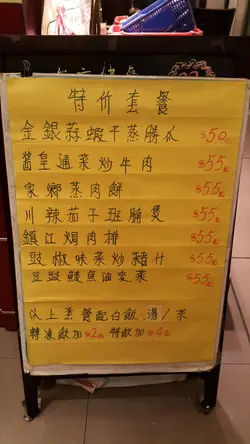 特价套餐
金銀蒜蝦干蒸勝瓜 $50元
酱皇通菜炒牛肉 $55元
家鄉蒸肉餅 $55元
川辣茄子班腩煲 $55元
鎮江焗肉排 $55元
豉椒味菜炒豬什 $55元
豆豉鯪魚油麥菜 $55元
以上套餐配白飯.湯/茶
轉凍飲加$2元 特飲加$4元